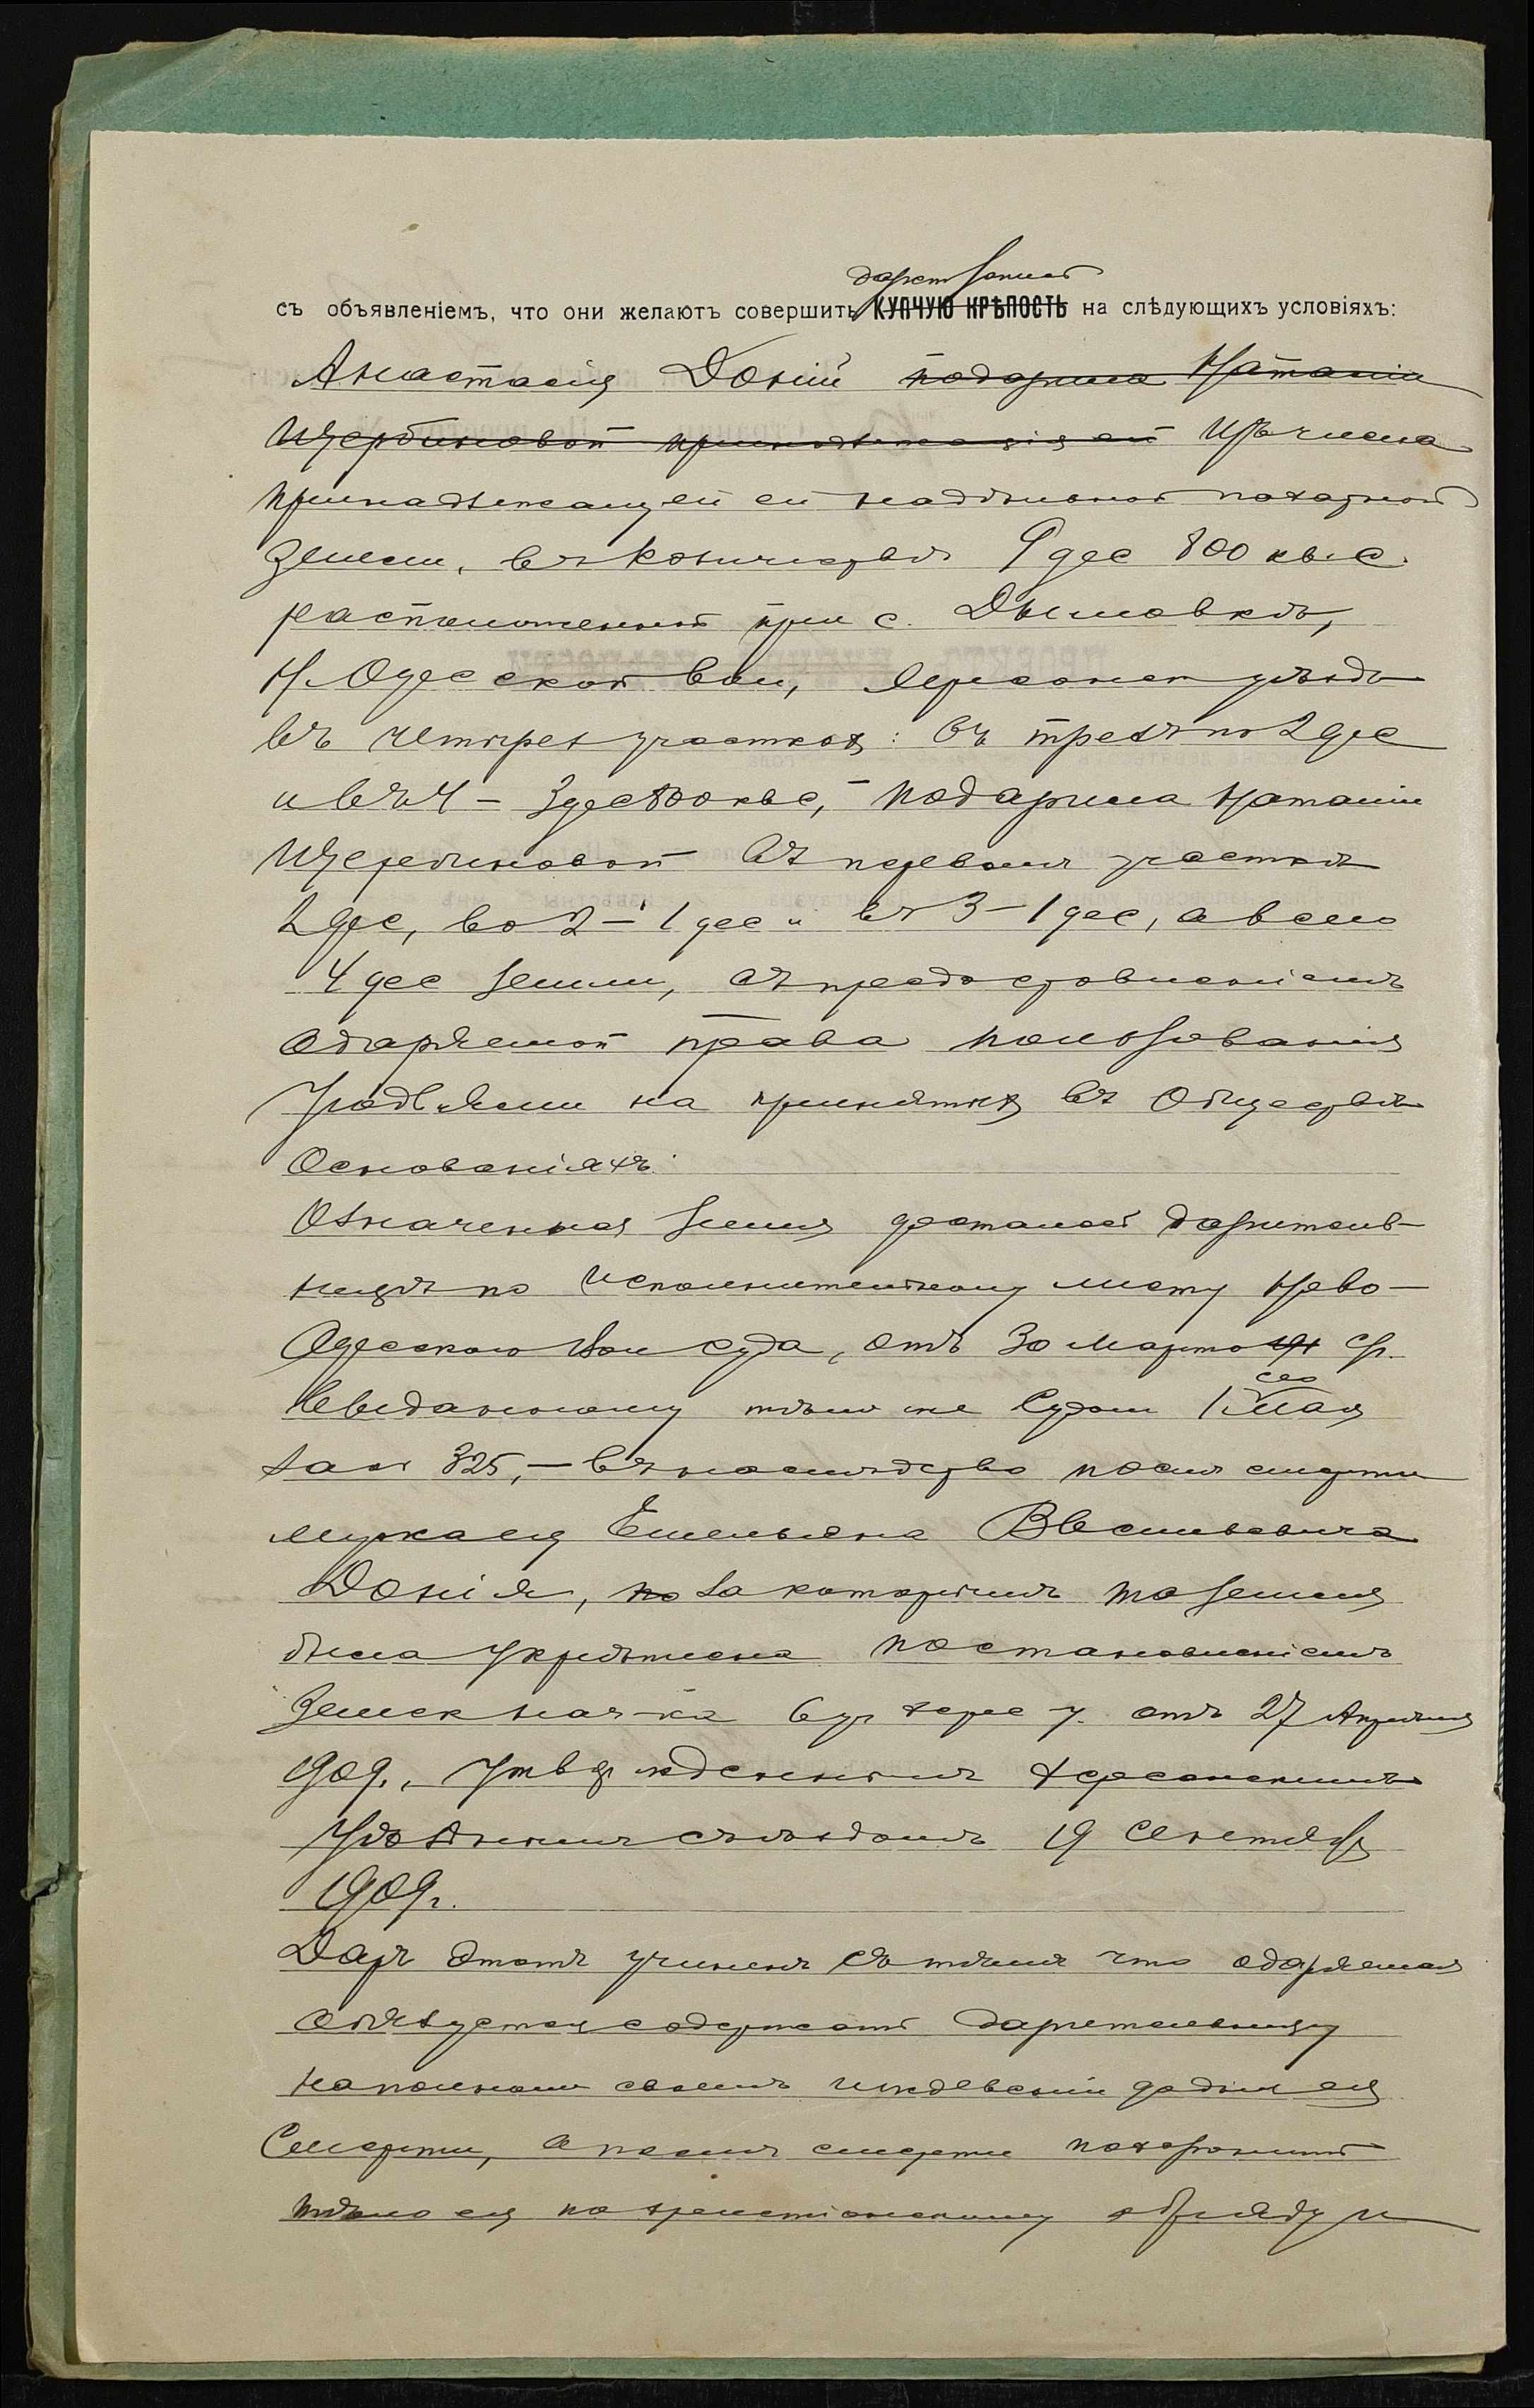 дарст запись
съ объявленіемъ, что они желаютъ совершить КУПЧУЮ КРѢПОСТЬ на слѣдующихъ условіяхъ:
Анастасія Доній подарила Наталіи
Щербиновой принадлежащія ей Изъ числа
принадлежащей ей надѣльной пахатной
земли, въ количествѣ 9 дес 800 кв. с.
расположенной при с. Дымовкѣ,
Н. Одесской вол, Херсонск уѣзда
въ четырех участках: въ трехъ по 2 дес
и въ 4 – 3 дес 800 кв с, – подарила Наталіи
Щербиновой въ первомъ участкѣ
2 дес, во 2 – 1 дес и въ 3 – 1 дес, а всего
4 дес земли, съ предоставленіемъ
одаряемой права пользованія
угодьями на принятых въ Обществѣ
Основаніяхъ.
Означенная земля досталась дарительницѣ
по исполнительному листу Ново-
Одесскаго Вол суда, отъ 30 Марта с/г.
выданному тѣмъ же Судом 1 сего Мая
за № 325, – въ наслѣдство послѣ смерти
мужа ея Емельяна Васильевича
Донія, по за которымъ та земля
была укрѣплена постановленіемъ
Земск нач-ка 6 уч Херс у. отъ 27 Апрѣля
1909., утвержденнымъ Херсонскимъ
Уѣзднымъ съѣздомъ 19 Сентября
1909 г.
Даръ этотъ учиненъ съ тѣмъ что одаряемая
обязуется содержать дарительницу
на полномъ своемъ иждевеніи до дня ея
Смерти, а послѣ смерти похоронить
тѣло ея по христіанскому обряду и